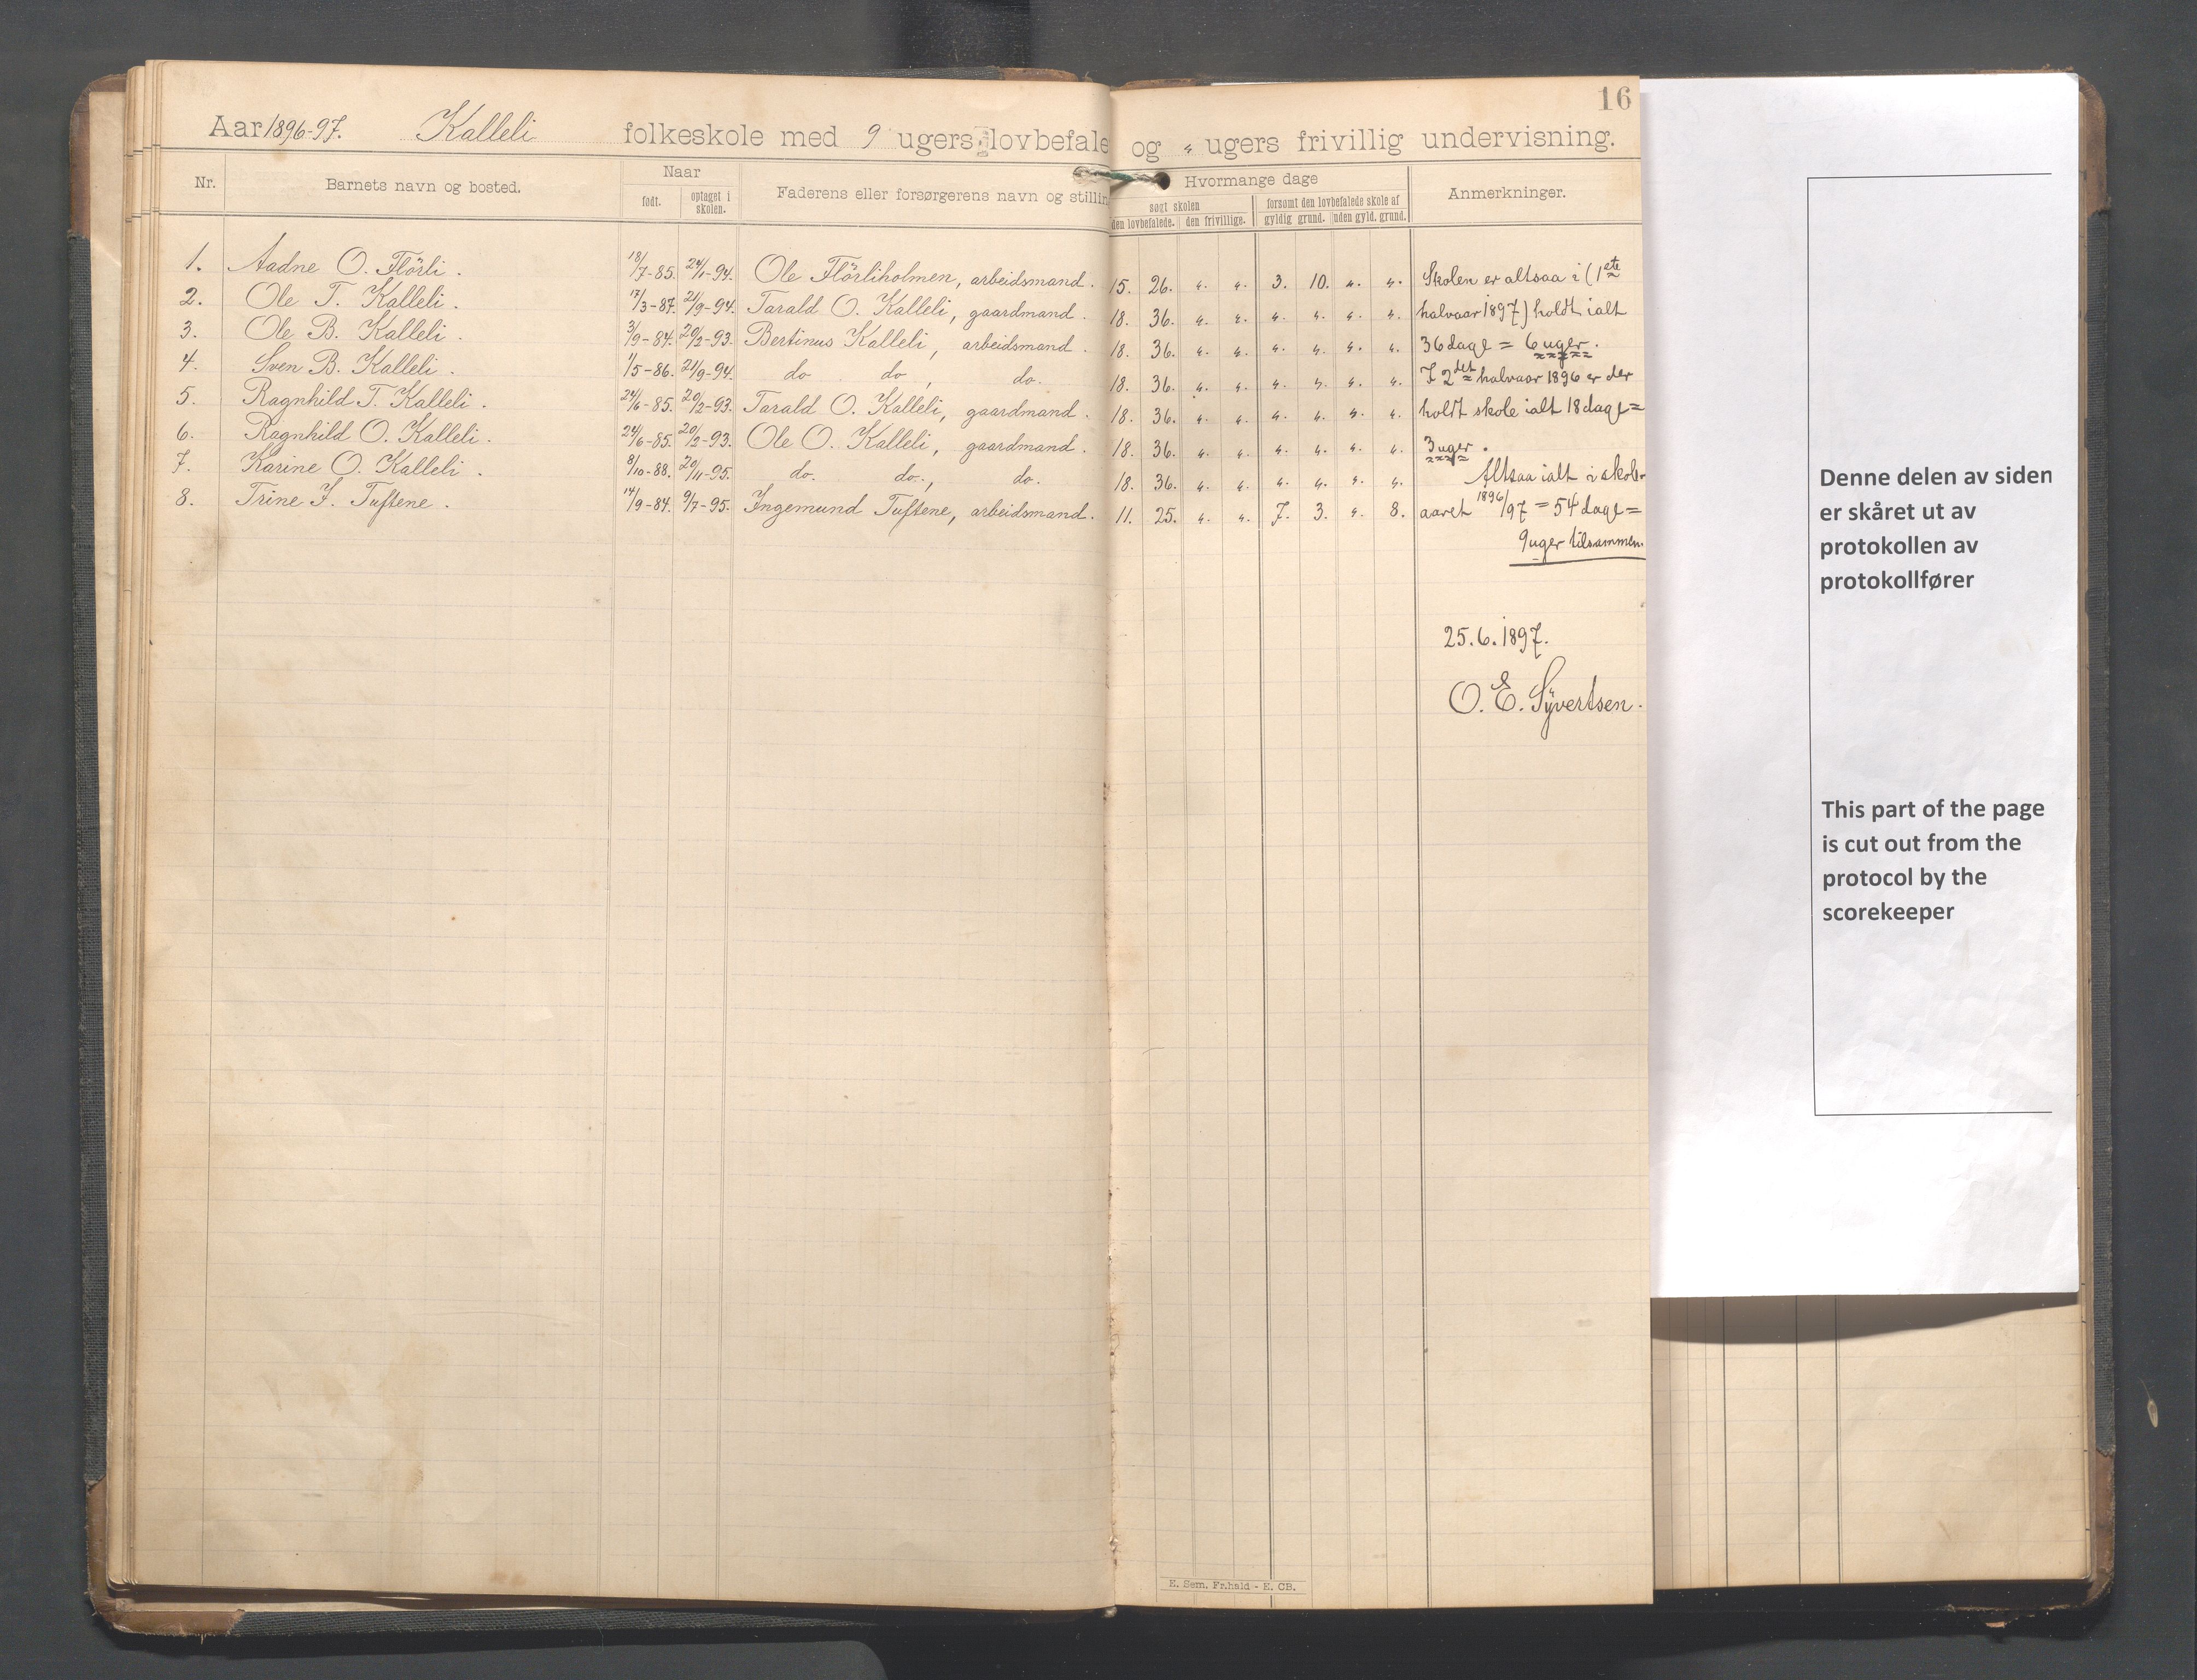 16
Aar 1896-97. Kalleli folkeskole med 9 ugers lovbefale og „ ugers frivillig undervisning.
Nr. Barnets navn og bosted. Naar Faderens eller forsørgerens navn og stillin Hvormange dage Anmerkninger.
født. optaget i skolen. søgt skolen forsømt den lovbefalede skole af
den lovbefalede. den frivillige. gyldig grund. uden gyld. grund.
1. Aadne O. Flörli. 18/7-85. 24/1-94. Ole Flörliholmen, arbeidsmand. 15. 26. „. „. 3. 10. „. „. Skolen er altsaa i (1ste
2. Ole T. Kalleli. 17/3-87. 21/9-94. Tarald O. Kalleli, gaardmand. 18. 36. „. „. „. „. „. „. halvaar 1897) holdt ialt
3. Ole B. Kalleli. 3/9-84. 20/2-93. Bertinus Kalleli, arbeidsmand. 18. 36. „. „. „. „. „. „. 36 dage = 6 uger.
4. Sven B. Kalleli. 1/5-86. 21/9-94. do do, do. 18. 36. „. „. „. „. „. „. I 2det halvaar 1896 er der
5. Ragnhild T. Kalleli. 24/6-85. 20/2-93. Tarald O. Kalleli, gaardmand. 18. 36. „. „. „. „. „. „. holdt skole ialt 18 dage =
6. Ragnhild O. Kalleli. 24/6-85. 20/2-93. Ole O. Kalleli, gaardmand. 18. 36. „. „. „. „. „. „. 3 uger.
7. Karine O. Kalleli. 8/10-88. 20/11-95. do. do., do. 18. 36. „. „. „. „. „. „. Altsaa ialt i skole-
8. Trine I. Tuftene. 14/9-84. 9/7-95. Ingemund Tuftene, arbeidsmand. 11. 25. „. „. 7. 3. „. 8. aaret 1896/97 = 54 dage =
9 uger tilsammen.
25.6.1897.
O. E. Syvertsen.
E. Sem, Fr.hald - E. CB.
Denne delen av siden
er skåret ut av
protokollen av
protokollfører
This part of the page
is cut out from the
protocol by the
scorekeeper